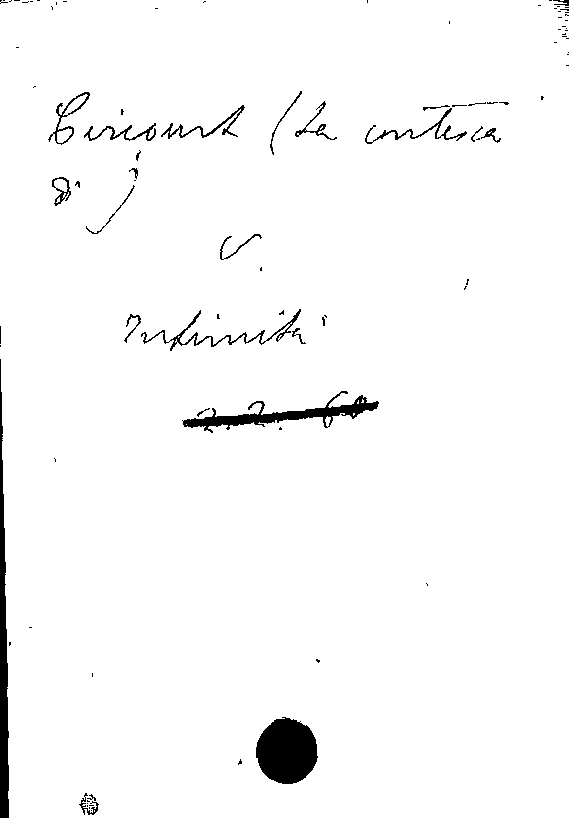 Circourt (La contessa
di)
V.
Intimità
2. 2. 60